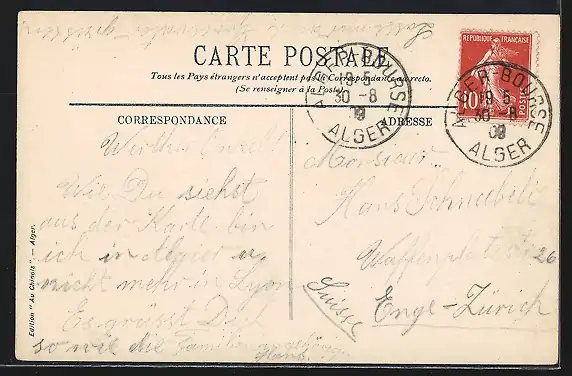 CARTE POSTALE
Tous les Pays étrangers n'acceptent pas la Correspondance au recto.
(Se renseigner à la Poste)
REPUBLIQUE FRANÇAISE
10
POSTES
ALGER-BOURSE
19 5
30 -8
09
ALGER
ALGER-BOURSE
19 5
30 -8
09
ALGER
CORRESPONDANCE
ADRESSE
Werther Onkel!
Wie Du siehst
aus der Karte bin
ich in Algier u.
nicht mehr in Lyon
Es grüsst Dich
sowie die Familienangehörigen
Hans
Monsieur
Hans Schneebeli
Waffenplatzstr 26
Enge-Zürich
Suisse
Edition "Au Chinois". — Alger.